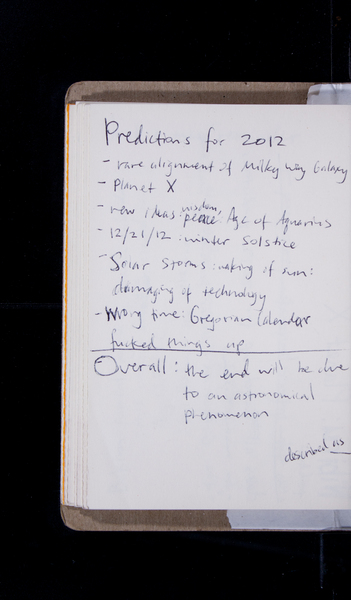 Predictions for 2012
- rare alignment of Milky Way Galaxy
- Planet X
- new ideas: wisdom, peace: Age of Aquarius
- 12/21/12 : winter solstice
- Solar storms : waking of sun:
damaging of technology
- Wrong time: Gregorian Calendar
fucked things up
Overall : the end will be due
to an astronomical
phenomenon
described as